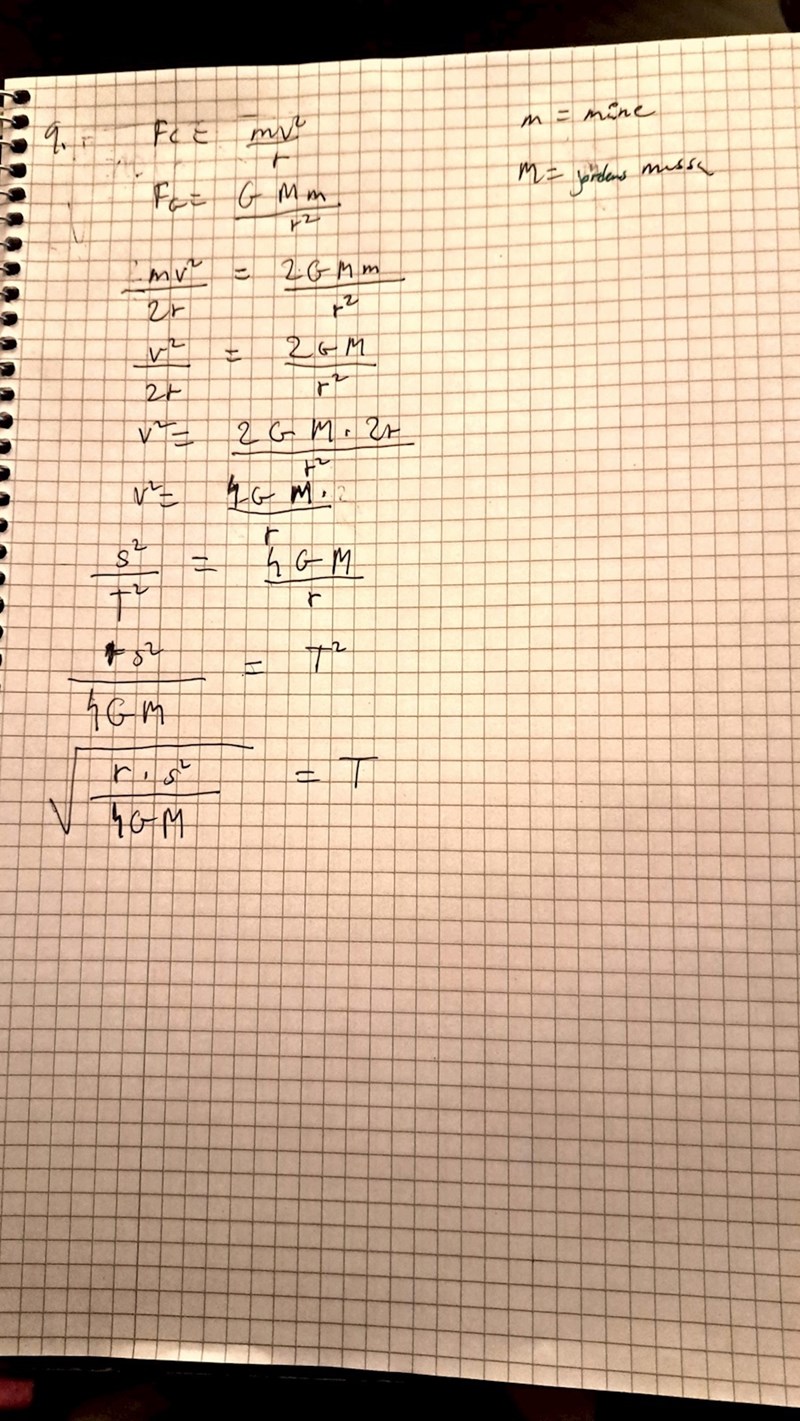 9. Fc = mv²/r
m = måne
M = jordens massa
FG = G M m/r²
mv²/2r = 2 G M m/r²
v²/2r = 2 G M/r²
v² = 2 G M · 2r/r²
v² = 4 G M ·/r
s²/T² = 4 G M/r
r s²/4 G M = T²
√(r · s²/4 G M) = T